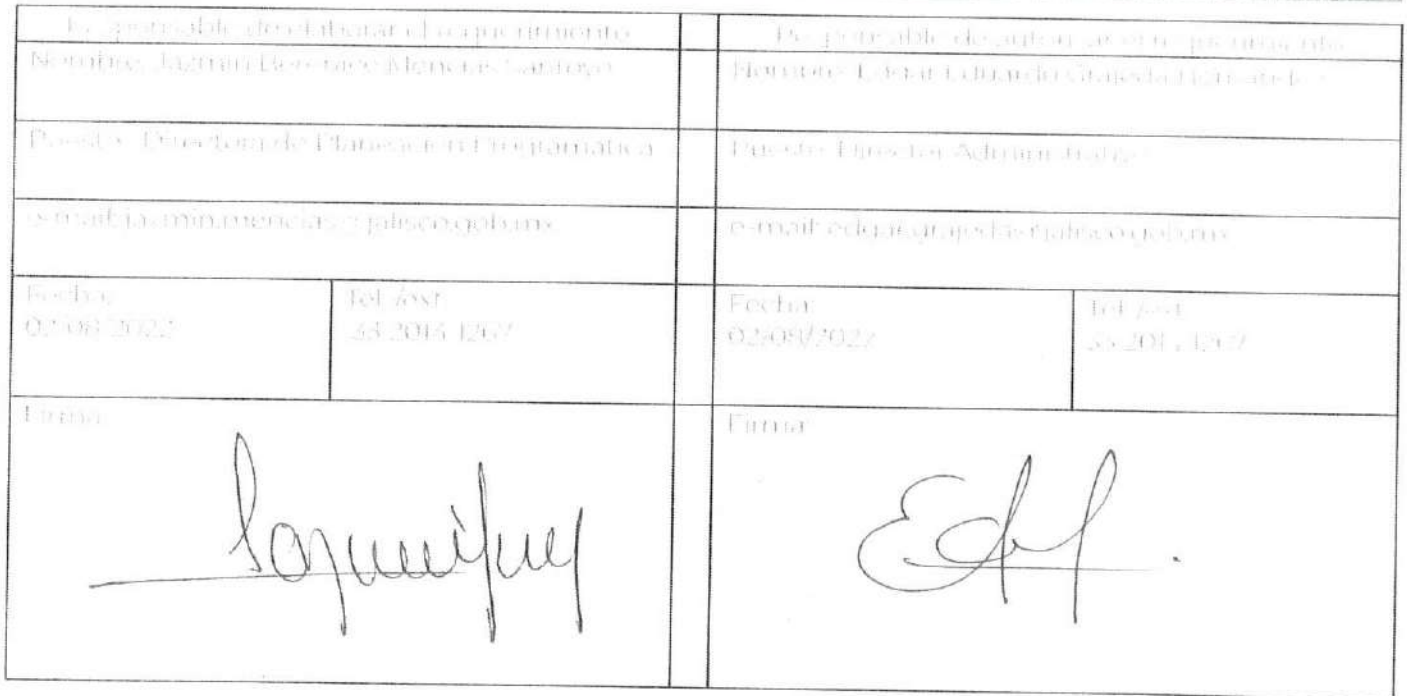 Responsable de elaborar el requerimiento
Nombre: Jazmin Berenice Mencias Santoyo
Puesto: Directora de Planeación Programática
e-mail: jazmin.mencias@jalisco.gob.mx
Fecha:
02/08/2022
Tel./ext
33 2013 1267
Firma:
Responsable de autorizar el requerimiento
Nombre: Edgar Eduardo Grajeda
Puesto: Director Administrativo
e-mail: edgar.grajeda@jalisco.gob.mx
Fecha:
02/08/2022
Tel./ext
Firma